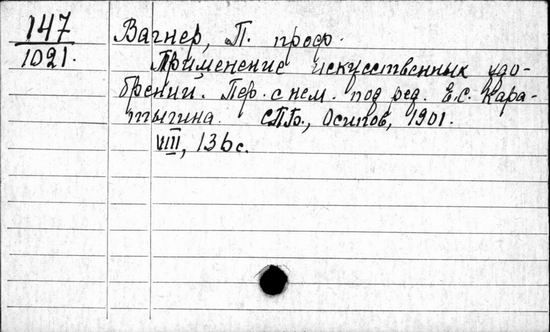 147 Вагнер, П. проф.
1021. Применение искусственных удо-
брений. Пер. с нем. под ред. Е.С. Кара-
тыгина. СПб., Осипов, 1901.
VIII, 136 с.